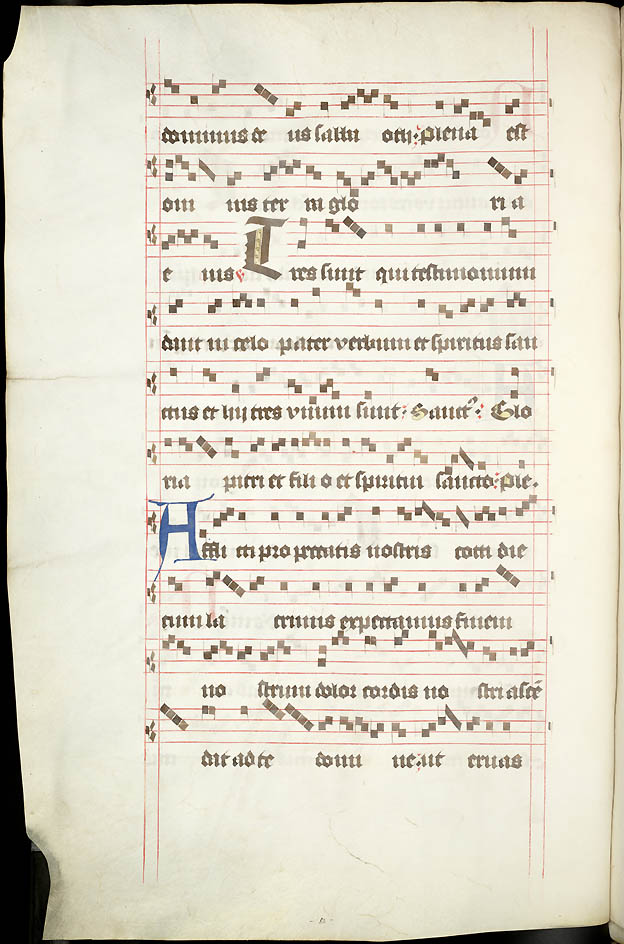 dominus de us sabba oth: plena est
om nis ter ra glo ri a
e ius ℣ Tres sunt qui testimonium
dant in celo pater verbum et spiritus san
ctus et hij tres unum sunt: Sanct9: Glo
ria patri et fili o et spiritui sancto: ple.
Affli cti pro peccatis nostris cotti die
cum la crimis expectamus finem
no strum dolor cordis no stri ascē
dit ad te domi ne: ut eruas